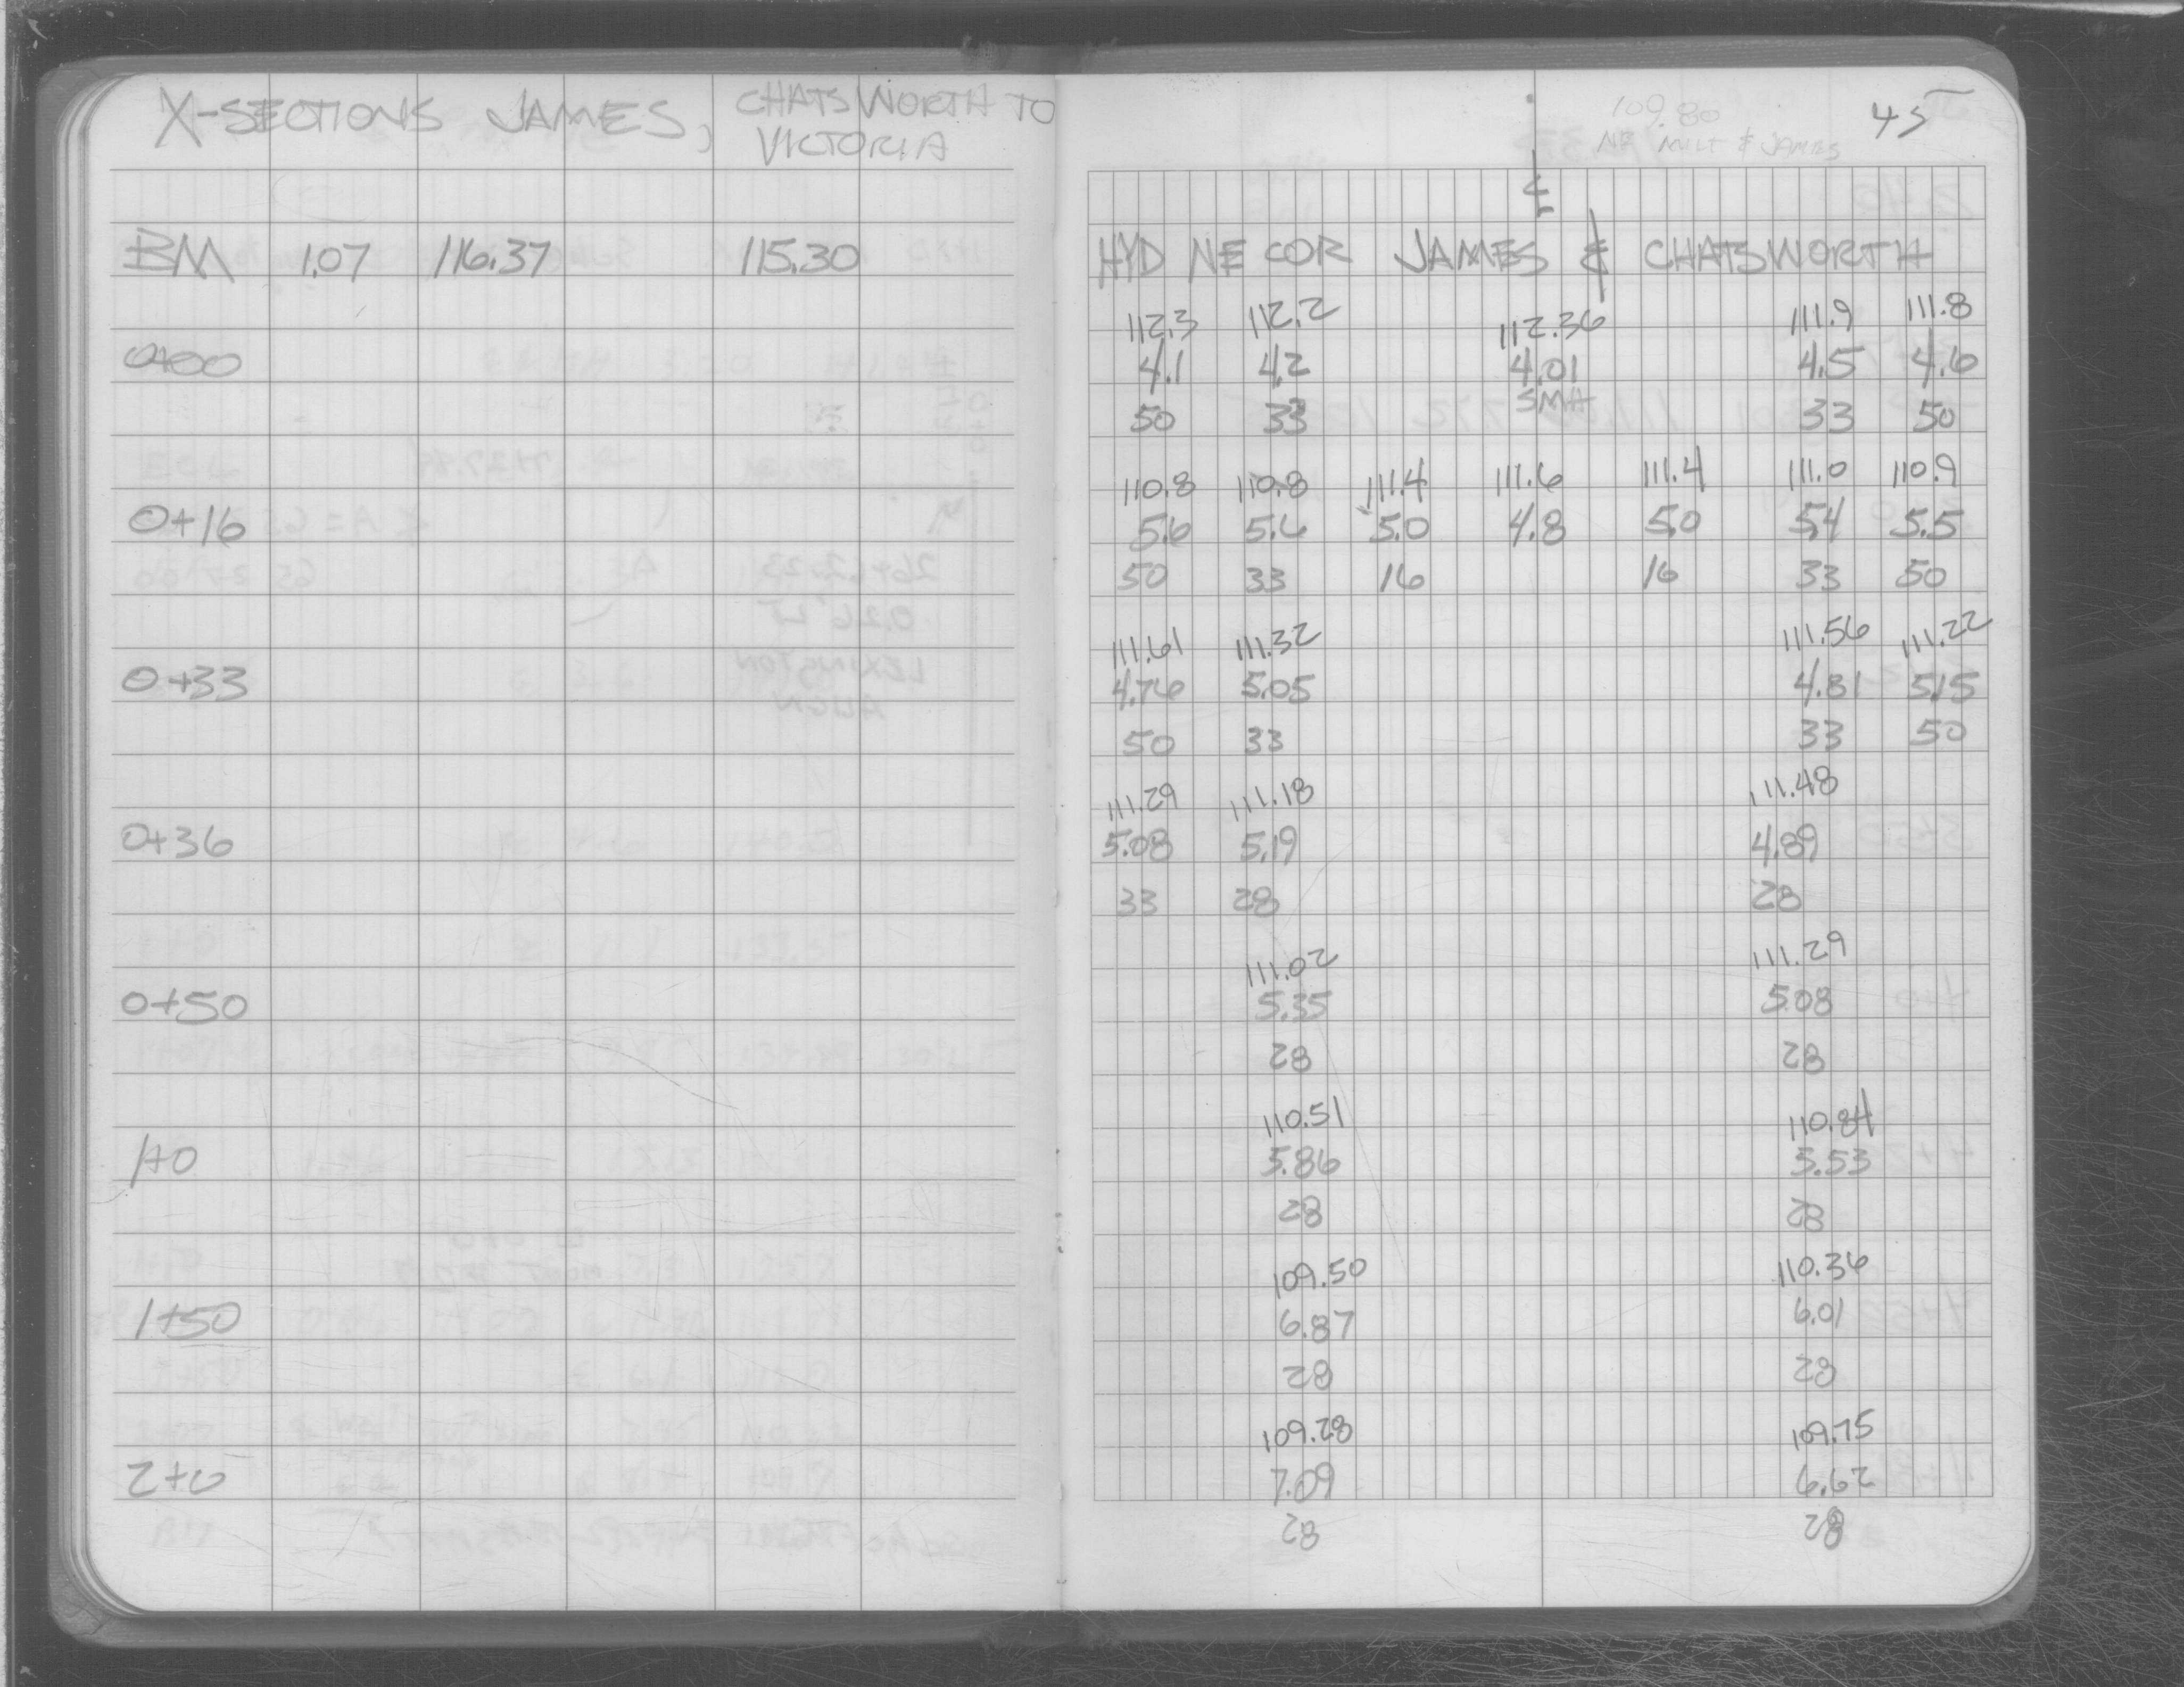 X-SECTIONS JAMES, CHATSWORTH TO
VICTORIA
BM 1.07 116.37 115.30
0+00
0+16
0+33
0+36
0+50
1+0
1+50
2+0
109.80 45
NE MILT & JAMES
℄
HYD NE COR JAMES & CHATSWORTH
112.3 112.2 112.36 111.9 111.8
4.1 4.2 4.01 4.5 4.6
SMH
50 33 33 50
110.8 110.8 111.4 111.6 111.4 111.0 110.9
5.6 5.6 5.0 4.8 5.0 5.4 5.5
50 33 16 16 33 50
111.61 111.32 111.56 111.22
4.76 5.05 4.81 5.15
50 33 33 50
111.29 111.18 111.48
5.08 5.19 4.89
33 28 28
111.02 111.29
5.35 5.08
28 28
110.51 110.84
5.86 5.53
28 28
109.50 110.36
6.87 6.01
28 28
109.28 109.75
7.09 6.62
28 28